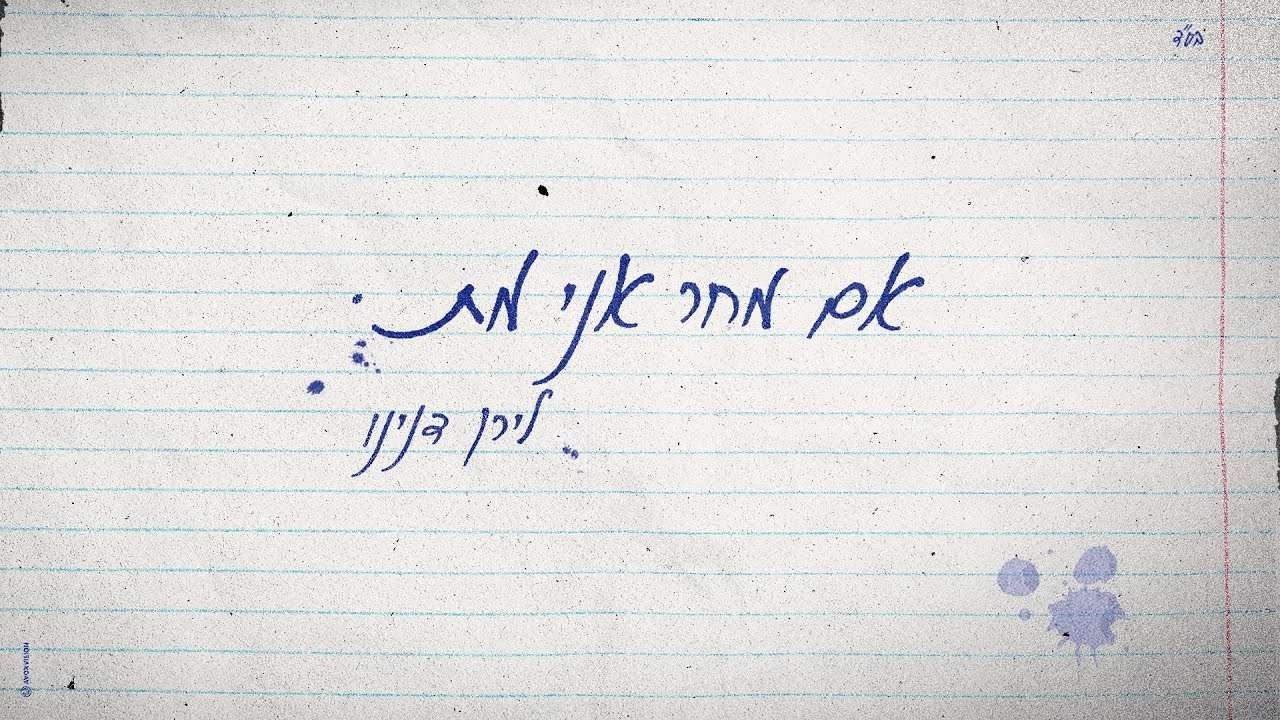 בס"ד
אם מחר אני מת
לירן דנינו
© AVOXVISION